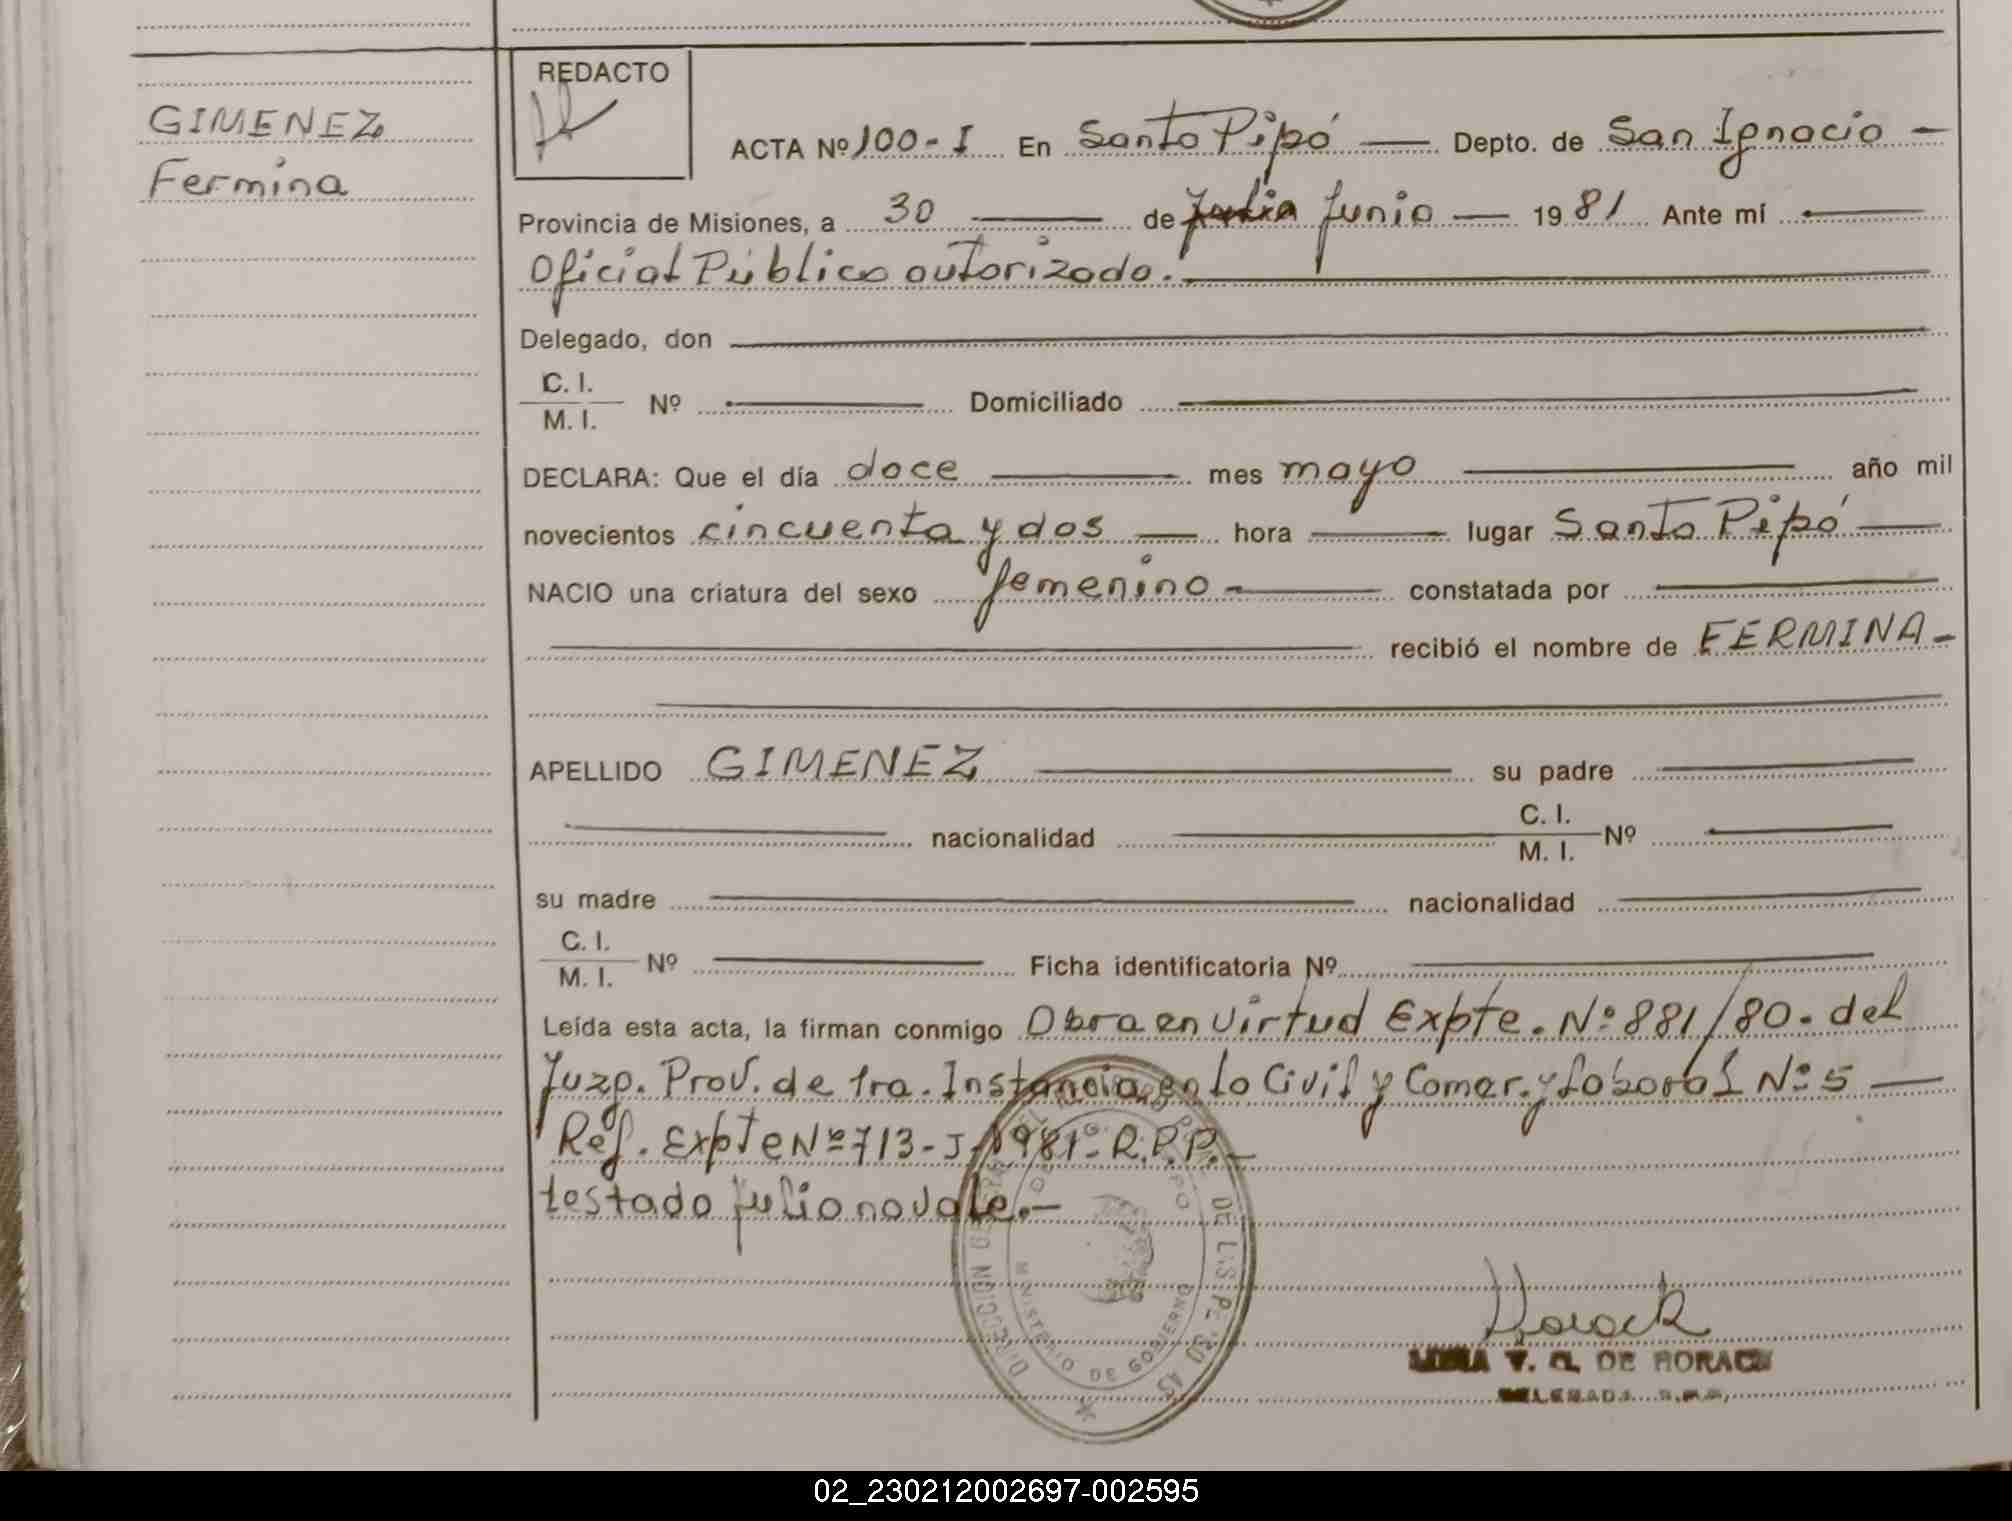 GIMENEZ
Fermina
REDACTO
ACTA Nº 100-I En Santo Pipó Depto. de San Ignacio -
Provincia de Misiones, a 30 de Julio Junio 1981 Ante mí
Oficial Público autorizado.
Delegado, don
C. I.
M. I. Nº Domiciliado
DECLARA: Que el día doce mes mayo año mil
novecientos cincuenta y dos hora lugar Santo Pipó
NACIO una criatura del sexo femenino - constatada por
recibió el nombre de FERMINA -
APELLIDO GIMENEZ su padre
nacionalidad C. I.
M. I. Nº
su madre nacionalidad
C. I.
M. I. Nº Ficha identificatoria Nº
Leída esta acta, la firman conmigo Obra en virtud Expte. Nº 881/80. del
Juzg. Prov. de 1ra. Instancia en lo Civil y Comer. y Laboral Nº 5
Ref. Expte Nº 713-J-1981- R.P.P. -
testado julio no vale. -
DIRECCION
DE LAS PERSONAS
MINISTERIO DE GOBIERNO
Horack
V. G. DE HORACK
02_230212002697-002595